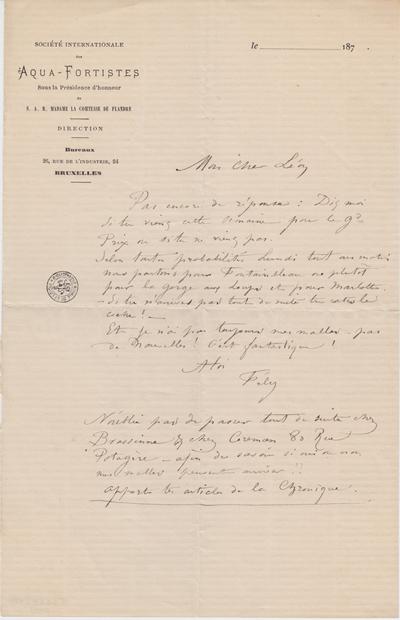 SOCIÉTÉ INTERNATIONALE
des
AQUA-FORTISTES
Sous la Présidence d'honneur
de
S. A. R. MADAME LA COMTESSE DE FLANDRE
DIRECTION
Bureaux
26, RUE DE L'INDUSTRIE, 24
BRUXELLES
le 187
Mon cher Léon
Pas encore de réponse : Dis moi
si tu viens cette semaine pour le Gd
Prix ou si tu ne viens pas.
Selon toutes probabilités Lundi tout au matin
nous partons pour Fontainebleau ou plutôt
pour la gorge aux loups et pour Marlotte.
Si tu n'arrives pas tout de suite tu rates le
coche ! —
Et je n'ai pas toujours mes malles — pas
de nouvelles ! C'est fantastique !
A toi
Fély
N'oublie pas de passer tout de suite chez
Brassinne & chez Coreman 80 Rue
Potagère — afin de savoir si oui ou non
mes malles peuvent arriver ??
apporte les articles de la Chronique.